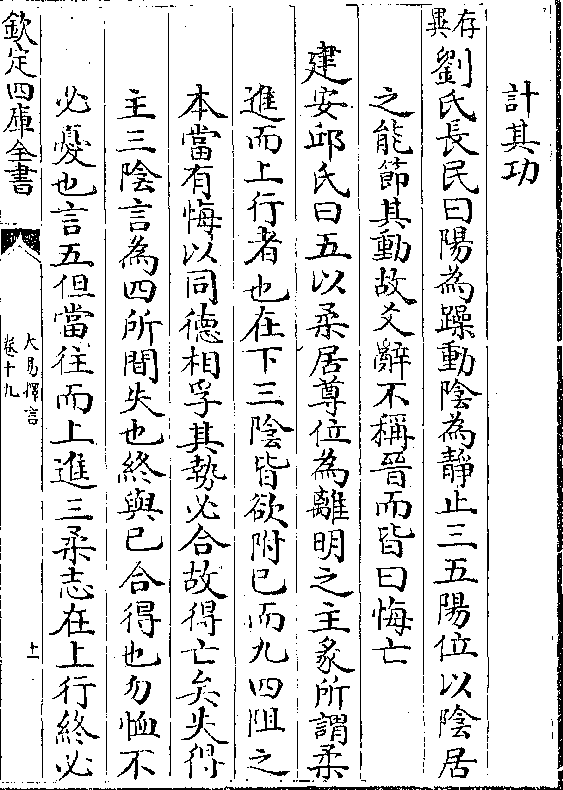 計其功
存異
劉氏長民曰陽為躁動陰為靜止三五陽位以陰居
之能節其動故爻辭不稱晉而皆曰悔亡
建安邱氏曰五以柔居尊位為離明之主彖所謂柔
進而上行者也在下三陰皆欲附已而九四阻之
本當有悔以同德相孚其勢必合故得亡矣失得
主三陰言為四所間失也終與已合得也勿恤不
必憂也言五但當往而上進三柔志在上行終必
欽定四庫全書
大易擇言
卷十九
十一